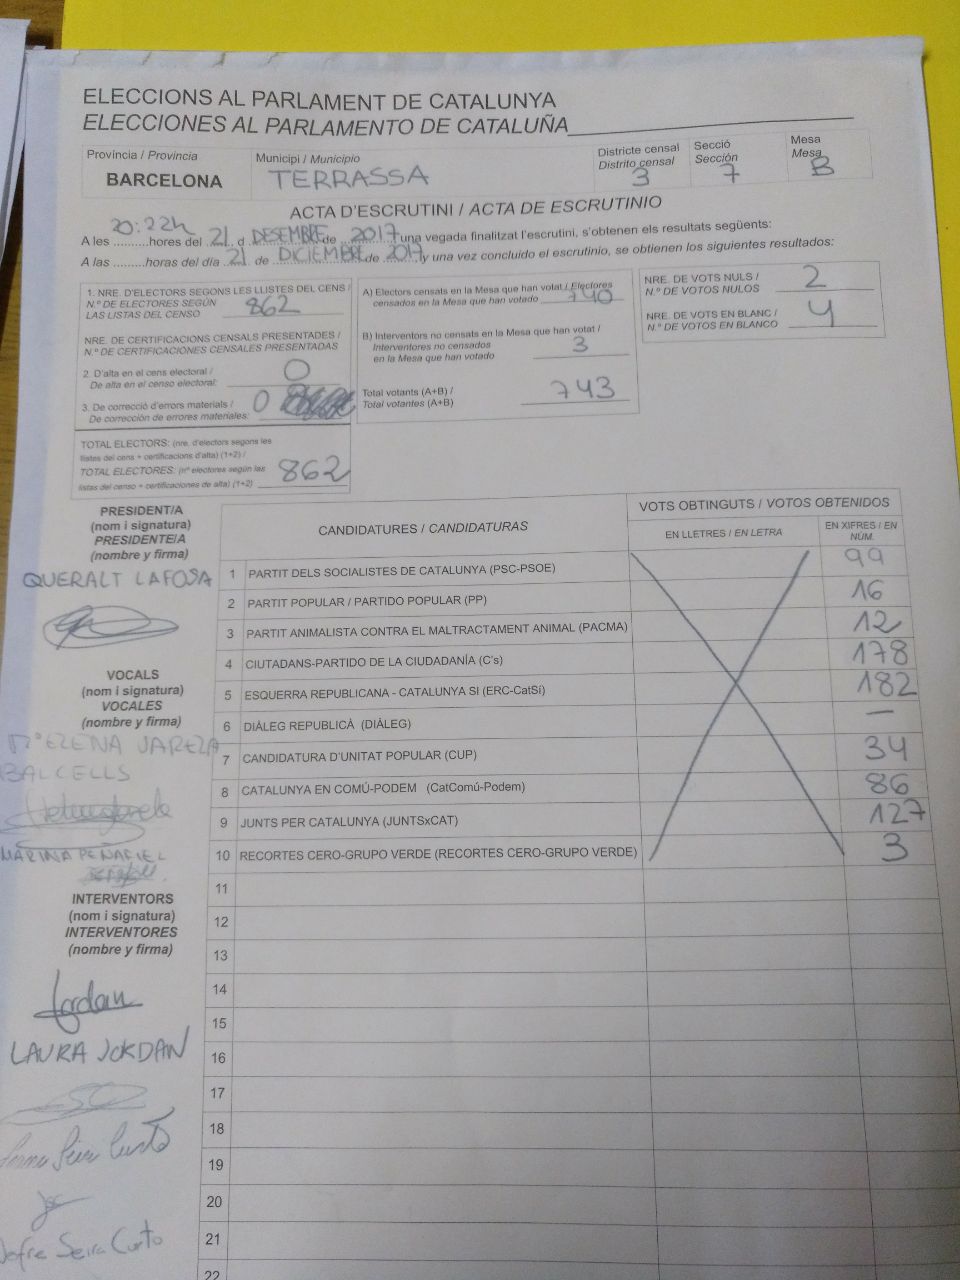 ELECCIONS AL PARLAMENT DE CATALUNYA
ELECCIONES AL PARLAMENTO DE CATALUÑA
Provincia / Provincia
BARCELONA
Municipi / Municipio
TERRASSA
Districte censal
Distrito censal
3
Secció
Sección
7
Mesa
Mesa
B
ACTA D'ESCRUTINI / ACTA DE ESCRUTINIO
20:22h
A les .........hores del 21 d DESEMBRE de 2017 una vegada finalitzat l'escrutini, s'obtenen els resultats següents:
A las .........horas del día 21 de DICIEMBRE de 2017 y una vez concluido el escrutinio, se obtienen los siguientes resultados:
1. NRE. D'ELECTORS SEGONS LES LLISTES DEL CENS /
N.º DE ELECTORES SEGÚN
LAS LISTAS DEL CENSO
862
NRE. DE CERTIFICACIONS CENSALS PRESENTADES /
N.º DE CERTIFICACIONES CENSALES PRESENTADAS
2. D'alta en el cens electoral /
De alta en el censo electoral:
0
3. De correcció d'errors materials /
De corrección de errores materiales:
0
TOTAL ELECTORS: (nre. d'electors segons les
llistes del cens + certificacions d'alta) (1+2) /
TOTAL ELECTORES: (nº electores según las
listas del censo + certificaciones de alta) (1+2)
862
A) Electors censats en la Mesa que han votat / Electores
censados en la Mesa que han votado
740
B) Interventors no censats en la Mesa que han votat /
Interventores no censados
en la Mesa que han votado
3
Total votants (A+B) /
Total votantes (A+B)
743
NRE. DE VOTS NULS /
N.º DE VOTOS NULOS
2
NRE. DE VOTS EN BLANC /
N.º DE VOTOS EN BLANCO
4
PRESIDENT/A
(nom i signatura)
PRESIDENTE/A
(nombre y firma)
QUERALT LAFOSA
VOCALS
(nom i signatura)
VOCALES
(nombre y firma)
Mª ELENA VARELA
BALCELLS
MARINA PEÑAFIEL
INTERVENTORS
(nom i signatura)
INTERVENTORES
(nombre y firma)
Jordan
LAURA JORDAN
Jofre Seira Curto
CANDIDATURES / CANDIDATURAS
VOTS OBTINGUTS / VOTOS OBTENIDOS
EN LLETRES / EN LETRA
EN XIFRES / EN
NÚM.
1 PARTIT DELS SOCIALISTES DE CATALUNYA (PSC-PSOE) 99
2 PARTIT POPULAR / PARTIDO POPULAR (PP) 16
3 PARTIT ANIMALISTA CONTRA EL MALTRACTAMENT ANIMAL (PACMA) 12
4 CIUTADANS-PARTIDO DE LA CIUDADANÍA (C's) 178
5 ESQUERRA REPUBLICANA - CATALUNYA SI (ERC-CatSí) 182
6 DIÀLEG REPUBLICÀ (DIÀLEG) —
7 CANDIDATURA D'UNITAT POPULAR (CUP) 34
8 CATALUNYA EN COMÚ-PODEM (CatComú-Podem) 86
9 JUNTS PER CATALUNYA (JUNTSxCAT) 127
10 RECORTES CERO-GRUPO VERDE (RECORTES CERO-GRUPO VERDE) 3
11
12
13
14
15
16
17
18
19
20
21
22